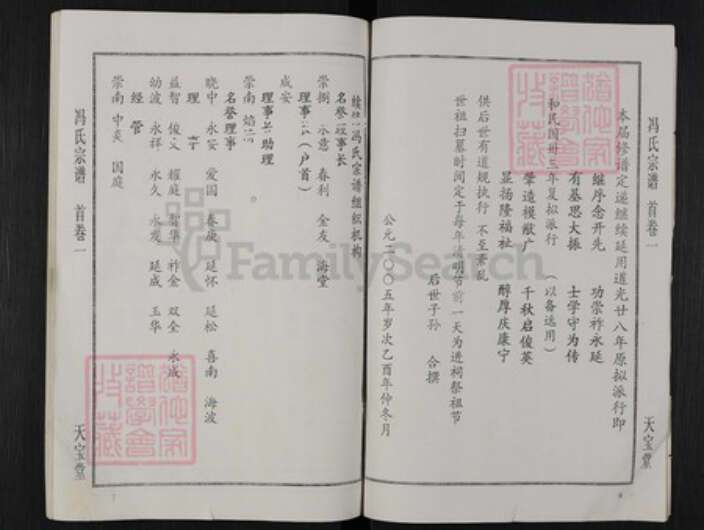 冯氏宗谱 首卷一
天宝堂
本届修谱定递继续延用道光廿八年原拟派行即
继序念开先 功崇祚永延
有基思大振 士学守为传
和民国卅三年复拟派行 (以备选用)
肇造模猷广 千秋启俊英
显扬隆福祉 醇厚庆康宁
供后世有道规执行 不至紊乱
世祖扫墓时间定于每年清明节前一天为进祠祭祖节
后世子孙 合撰
公元二00五年岁次乙酉年仲冬月
冯氏宗谱组织机构
名誉理事长
崇捌 永意 春利 金友 海堂
理事长(户首)
成安
理事长助理
崇南 焰
名誉理事
晓中 永安 爱国 春庚 延怀 延松 喜南 海波
理
益智 俊义 耀庭 智华 祚金 双全 永成
幼波 永祥 永久 永发 延成 玉华
经管
崇南 中炎 国庭
冯氏宗谱 首卷一
天宝堂
FamilySearch